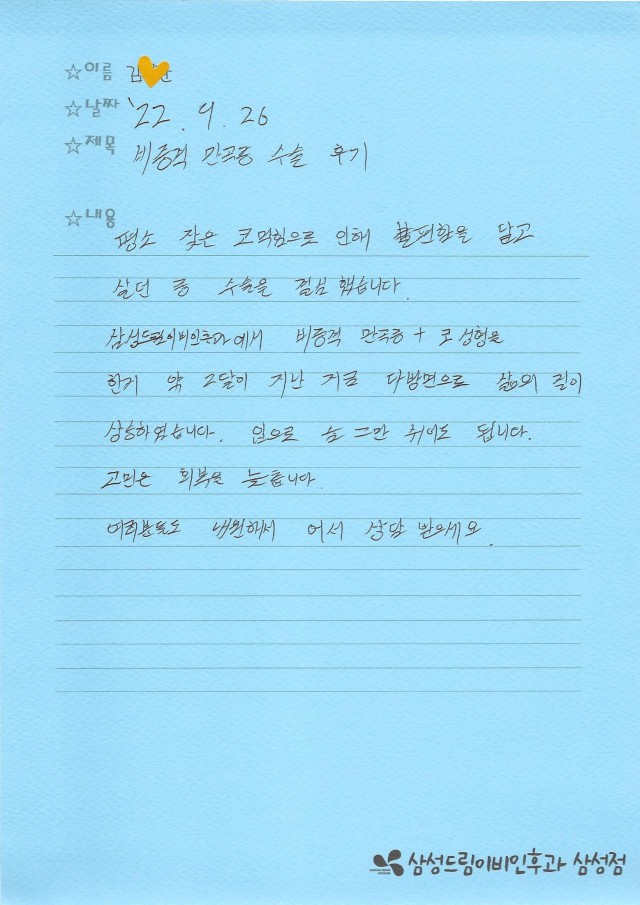 ☆이름 김
☆날짜 '22. 9. 26
☆제목 비중격 만곡증 수술 후기
☆내용
평소 잦은 코막힘으로 인해 불편함을 달고
살던 중 수술을 결심했습니다.
삼성드림이비인후과에서 비중격 만곡증 + 코 성형을
한지 약 2달이 지난 지금 다방면으로 삶의 질이
상승하였습니다. 입으로 숨 그만 쉬어도 됩니다.
고민은 회복을 늦춥니다.
여러분들도 내원해서 어서 상담 받으세요.
삼성드림이비인후과 삼성점